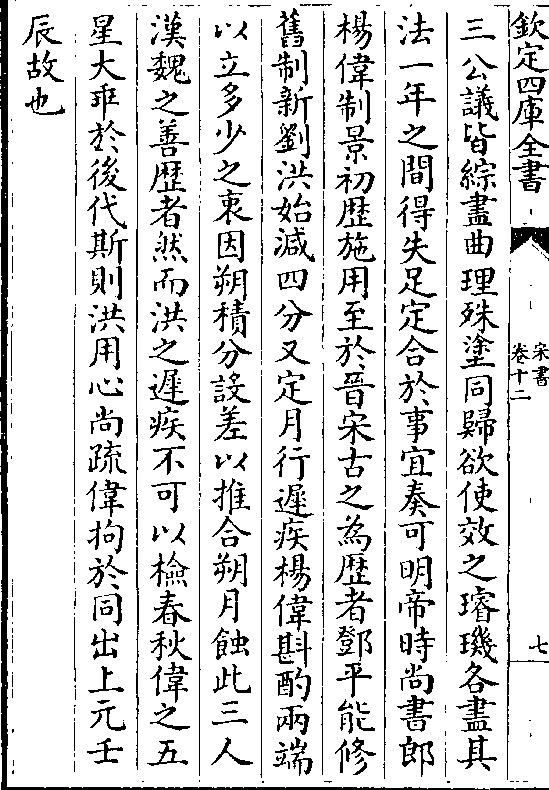 欽定四庫全書
宋書
卷十二
七
三公議皆綜盡曲理殊塗同歸欲使效之璿璣各盡其
法一年之間得失足定合於事宜奏可明帝時尚書郎
楊偉制景初歴施用至於晉宋古之為歴者鄧平能修
舊制新劉洪始減四分又定月行遲疾楊偉斟酌兩端
以立多少之衷因朔積分設差以推合朔月蝕此三人
漢魏之善歴者然而洪之遲疾不可以檢春秋偉之五
星大乖於後代斯則洪用心尚疏偉拘於同出上元壬
辰故也